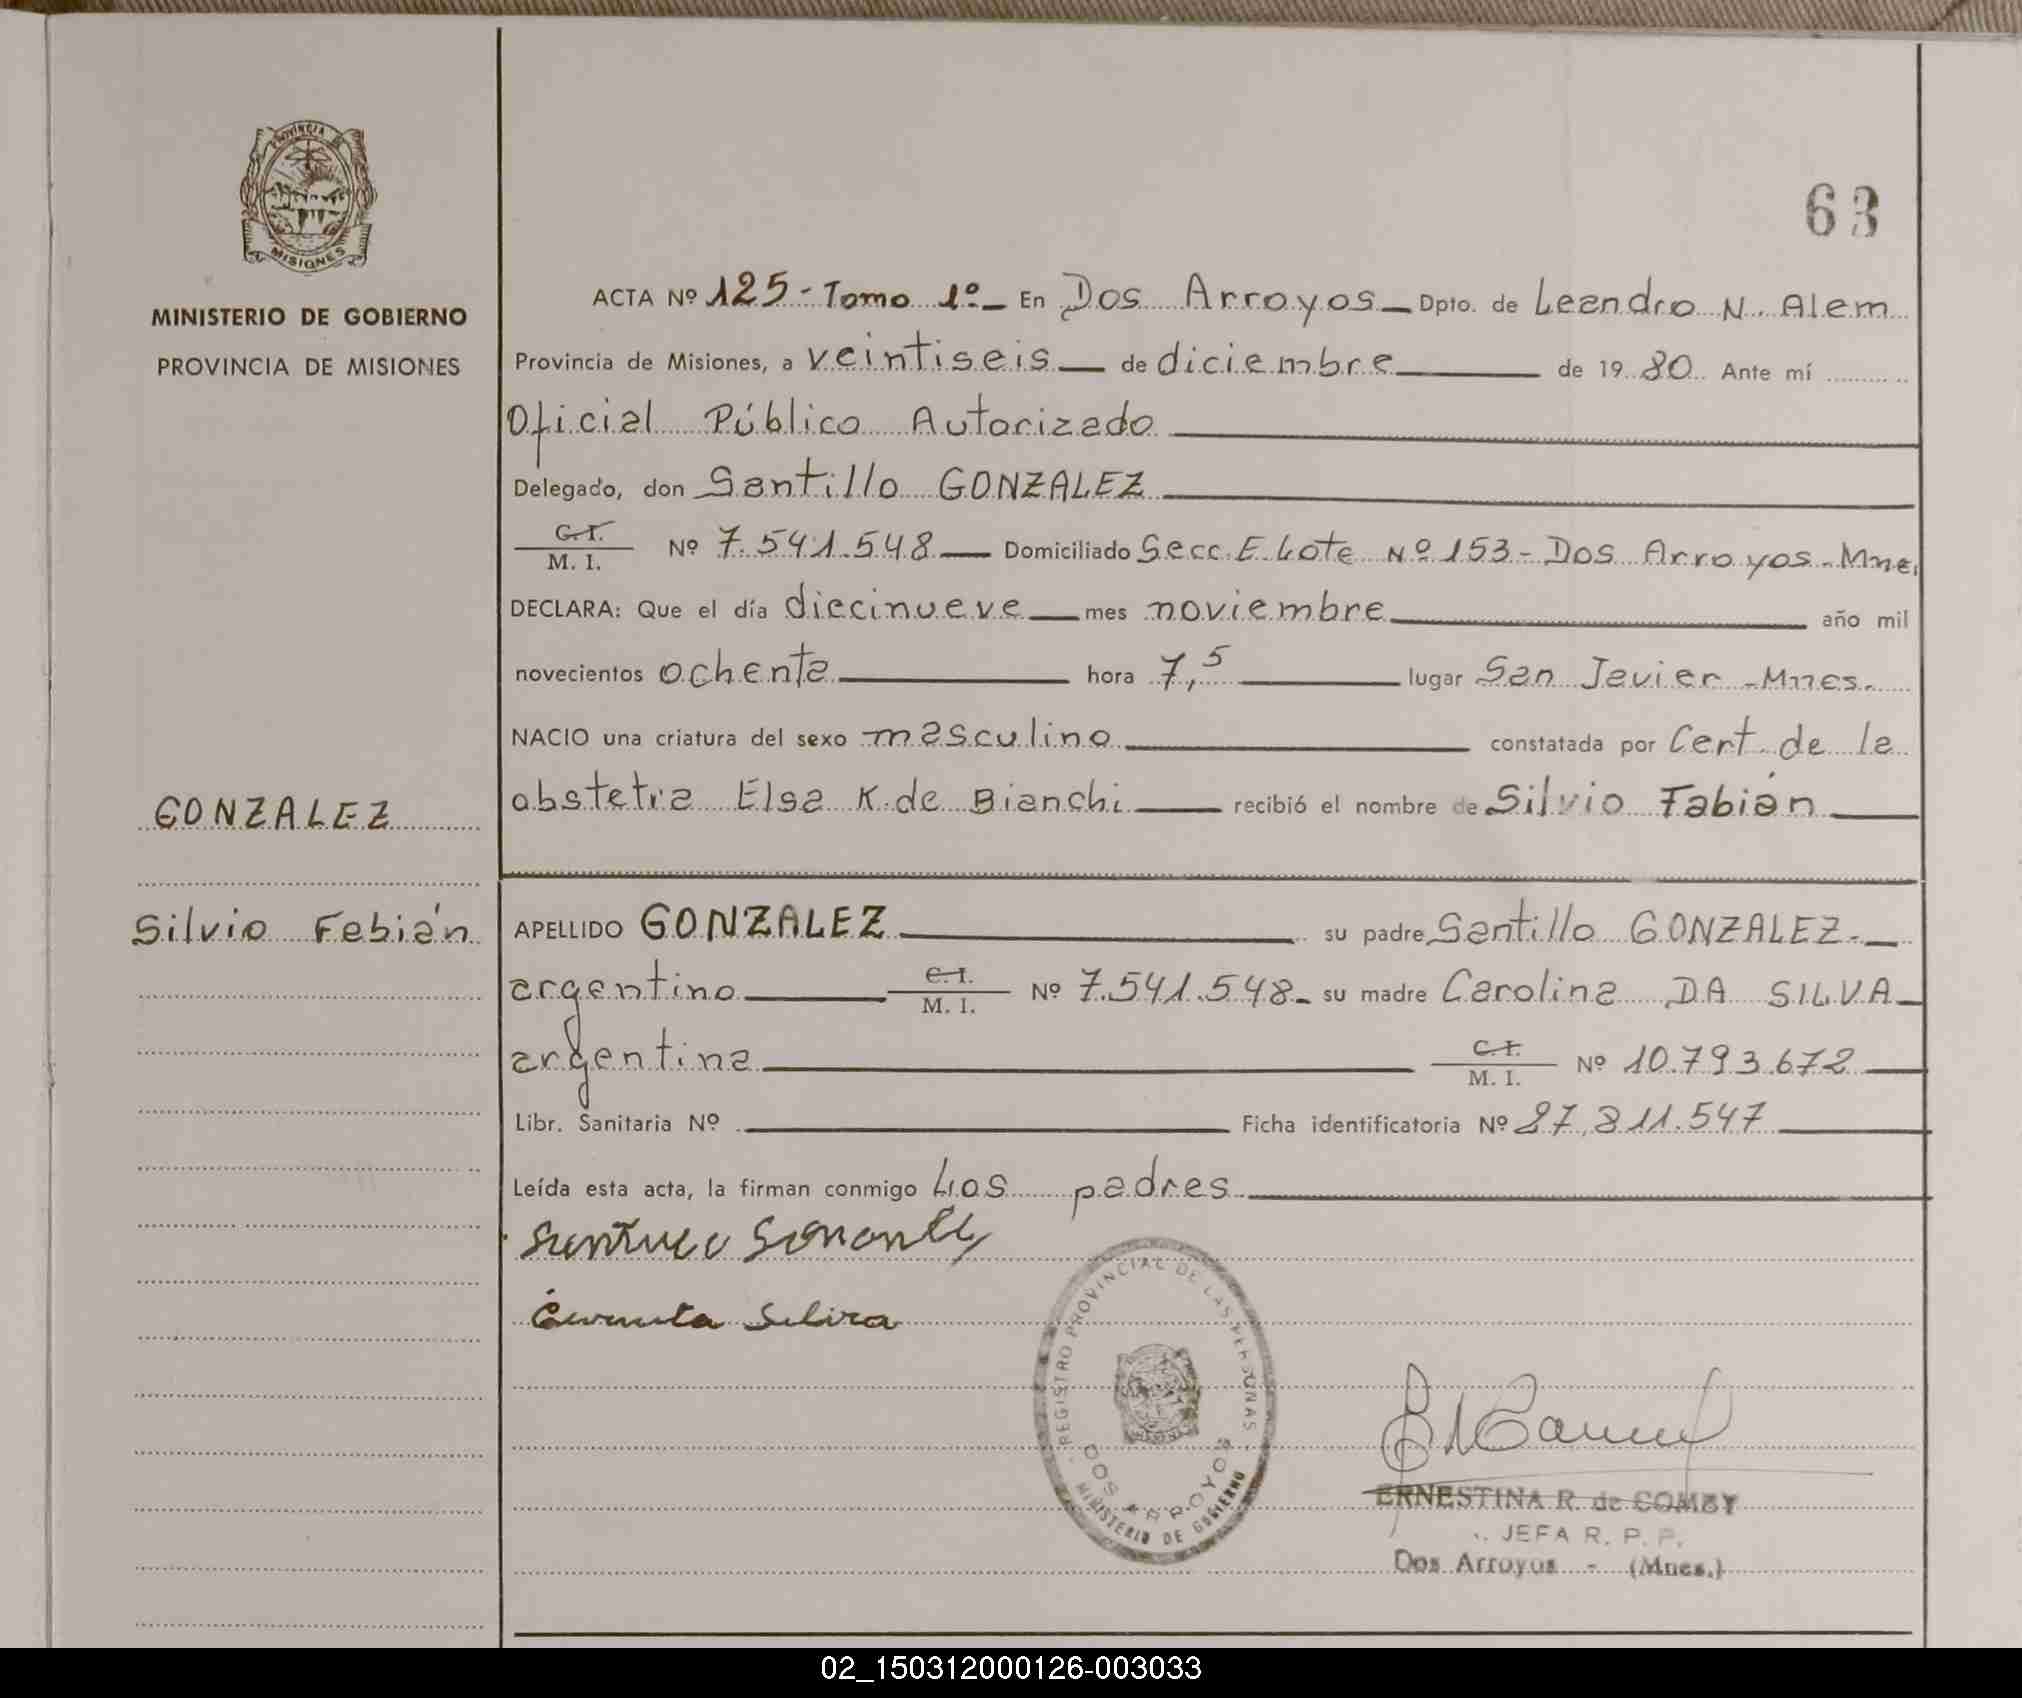 PROVINCIA DE
MISIONES
MINISTERIO DE GOBIERNO
PROVINCIA DE MISIONES
63
ACTA Nº 125 - Tomo 1º - En Dos Arroyos - Dpto. de Leandro N. Alem
Provincia de Misiones, a veintiseis de diciembre de 19 80 Ante mí
Oficial Público Autorizado
Delegado, don Santillo GONZALEZ
C. I.
M. I.
Nº 7.541.548 Domiciliado Secc. E Lote Nº 153 - Dos Arroyos - Mnes
DECLARA: Que el día diecinueve mes noviembre año mil
novecientos ochenta hora 7,5 lugar San Javier - Mnes.
NACIO una criatura del sexo masculino constatada por Cert. de la
obstetra Elsa K. de Bianchi recibió el nombre de Silvio Fabián
GONZALEZ
Silvio Fabián
APELLIDO GONZALEZ su padre Santillo GONZALEZ.
argentino C. I. M. I. Nº 7.541.548 - su madre Carolina DA SILVA
argentina C. I. M. I. Nº 10.793.672
Libr. Sanitaria Nº Ficha identificatoria Nº 27.811.547
Leída esta acta, la firman conmigo Los padres
REGISTRO PROVINCIAL DE LAS PERSONAS
DOS ARROYOS
MINISTERIO DE GOBIERNO
ERNESTINA R. de COMBY
JEFA R. P. P.
Dos Arroyos - (Mnes.)
02_150312000126-003033